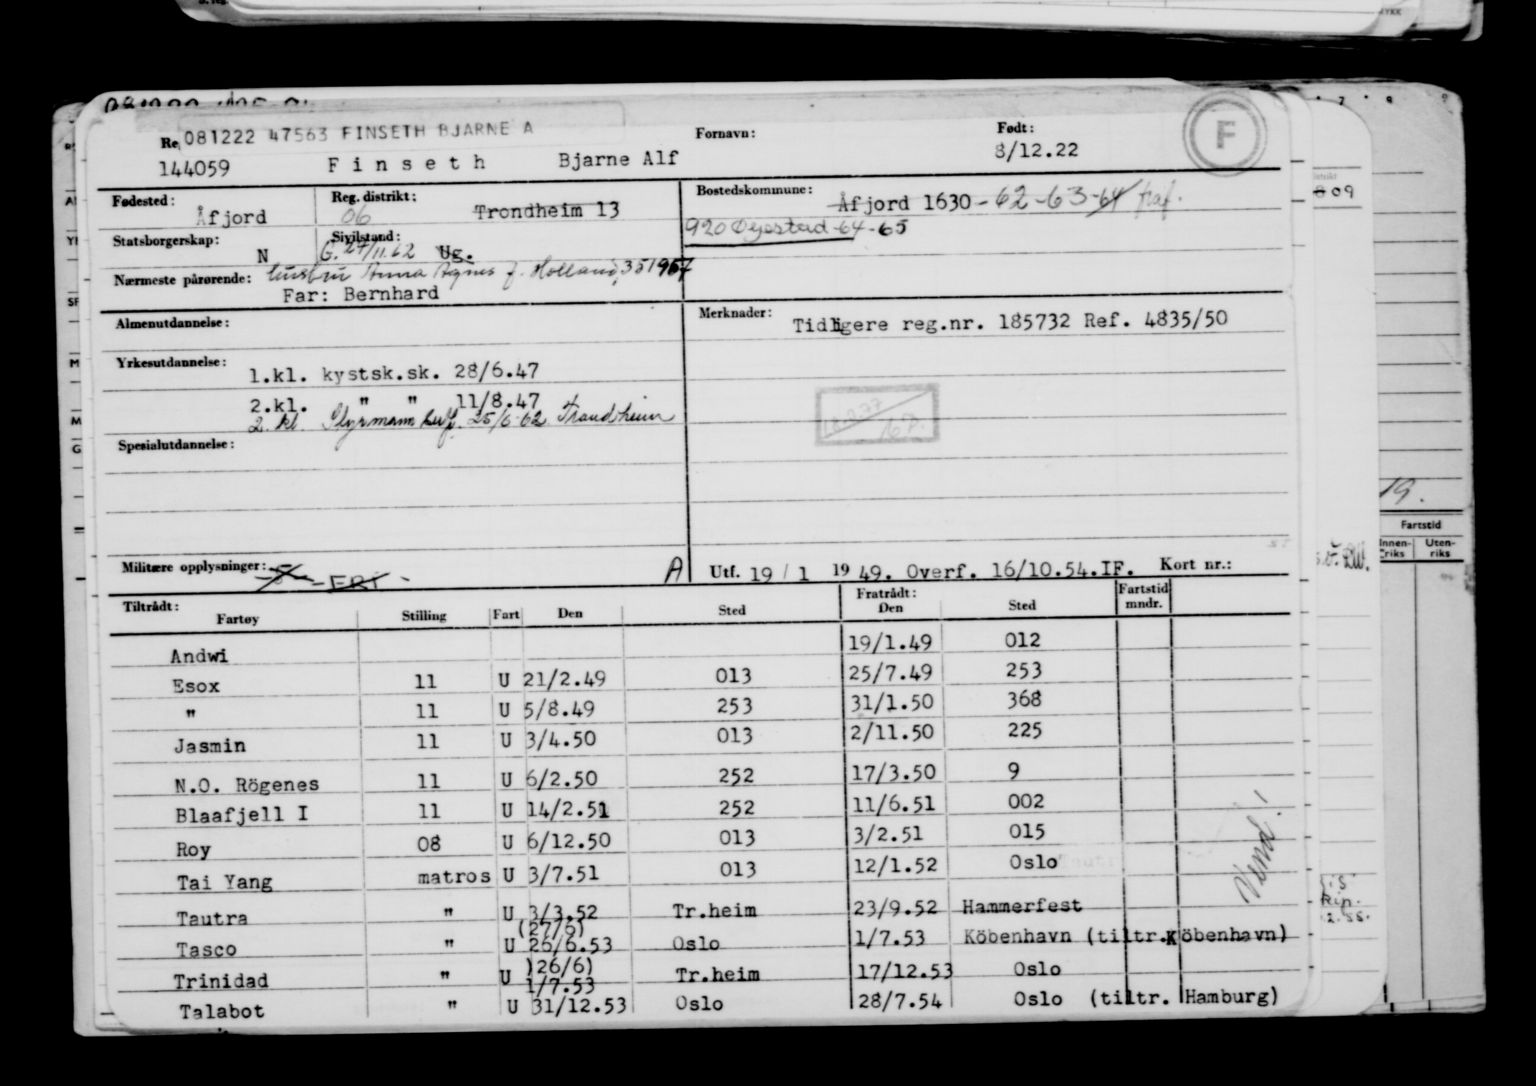 Re 081222 47563 FINSETH BJARNE A Fornavn: Født: F
144059 Finseth Bjarne Alf 8/12.22
Fødested: Åfjord Reg. distrikt: 06 Trondheim 13 Bostedskommune: Åfjord 1630 - 62 - 63 - 64 fraf.
Statsborgerskap: N Sivilstand: G. 27/11.62 Ug. 920 Øyestad - 64 - 65
Nærmeste pårørende: hustru Anna Agnes f. Holland, 351957
Far: Bernhard
Almenutdannelse: Merknader: Tidligere reg.nr. 185732 Ref. 4835/50
Yrkesutdannelse: 1.kl. kystsk.sk. 28/6.47
2.kl. " " 11/8.47
2. kl. Styrmann 25/6-62 Trondheim
Spesialutdannelse:
Militære opplysninger: - FRI - A Utf. 19/1 1949. Overf. 16/10.54.IF. Kort nr.:
Tiltrådt: Fratrådt: Fartstid
Fartøy Stilling Fart Den Sted Den Sted mndr.
Andwi 19/1.49 012
Esox 11 U 21/2.49 013 25/7.49 253
" 11 U 5/8.49 253 31/1.50 368
Jasmin 11 U 3/4.50 013 2/11.50 225
N.O. Rögenes 11 U 6/2.50 252 17/3.50 9
Blaafjell I 11 U 14/2.51 252 11/6.51 002
Roy 08 U 6/12.50 013 3/2.51 015
Tai Yang matros U 3/7.51 013 12/1.52 Oslo
Tautra " U 3/3.52 Tr.heim 23/9.52 Hammerfest
(27/6)
Tasco " U 26/6.53 Oslo 1/7.53 Köbenhavn (tiltr.Köbenhavn)
)26/6)
Trinidad " U 1/7.53 Tr.heim 17/12.53 Oslo
Talabot " U 31/12.53 Oslo 28/7.54 Oslo (tiltr. Hamburg)
Vend!
809
19.
Fartstid
Innen-riks Uten-riks